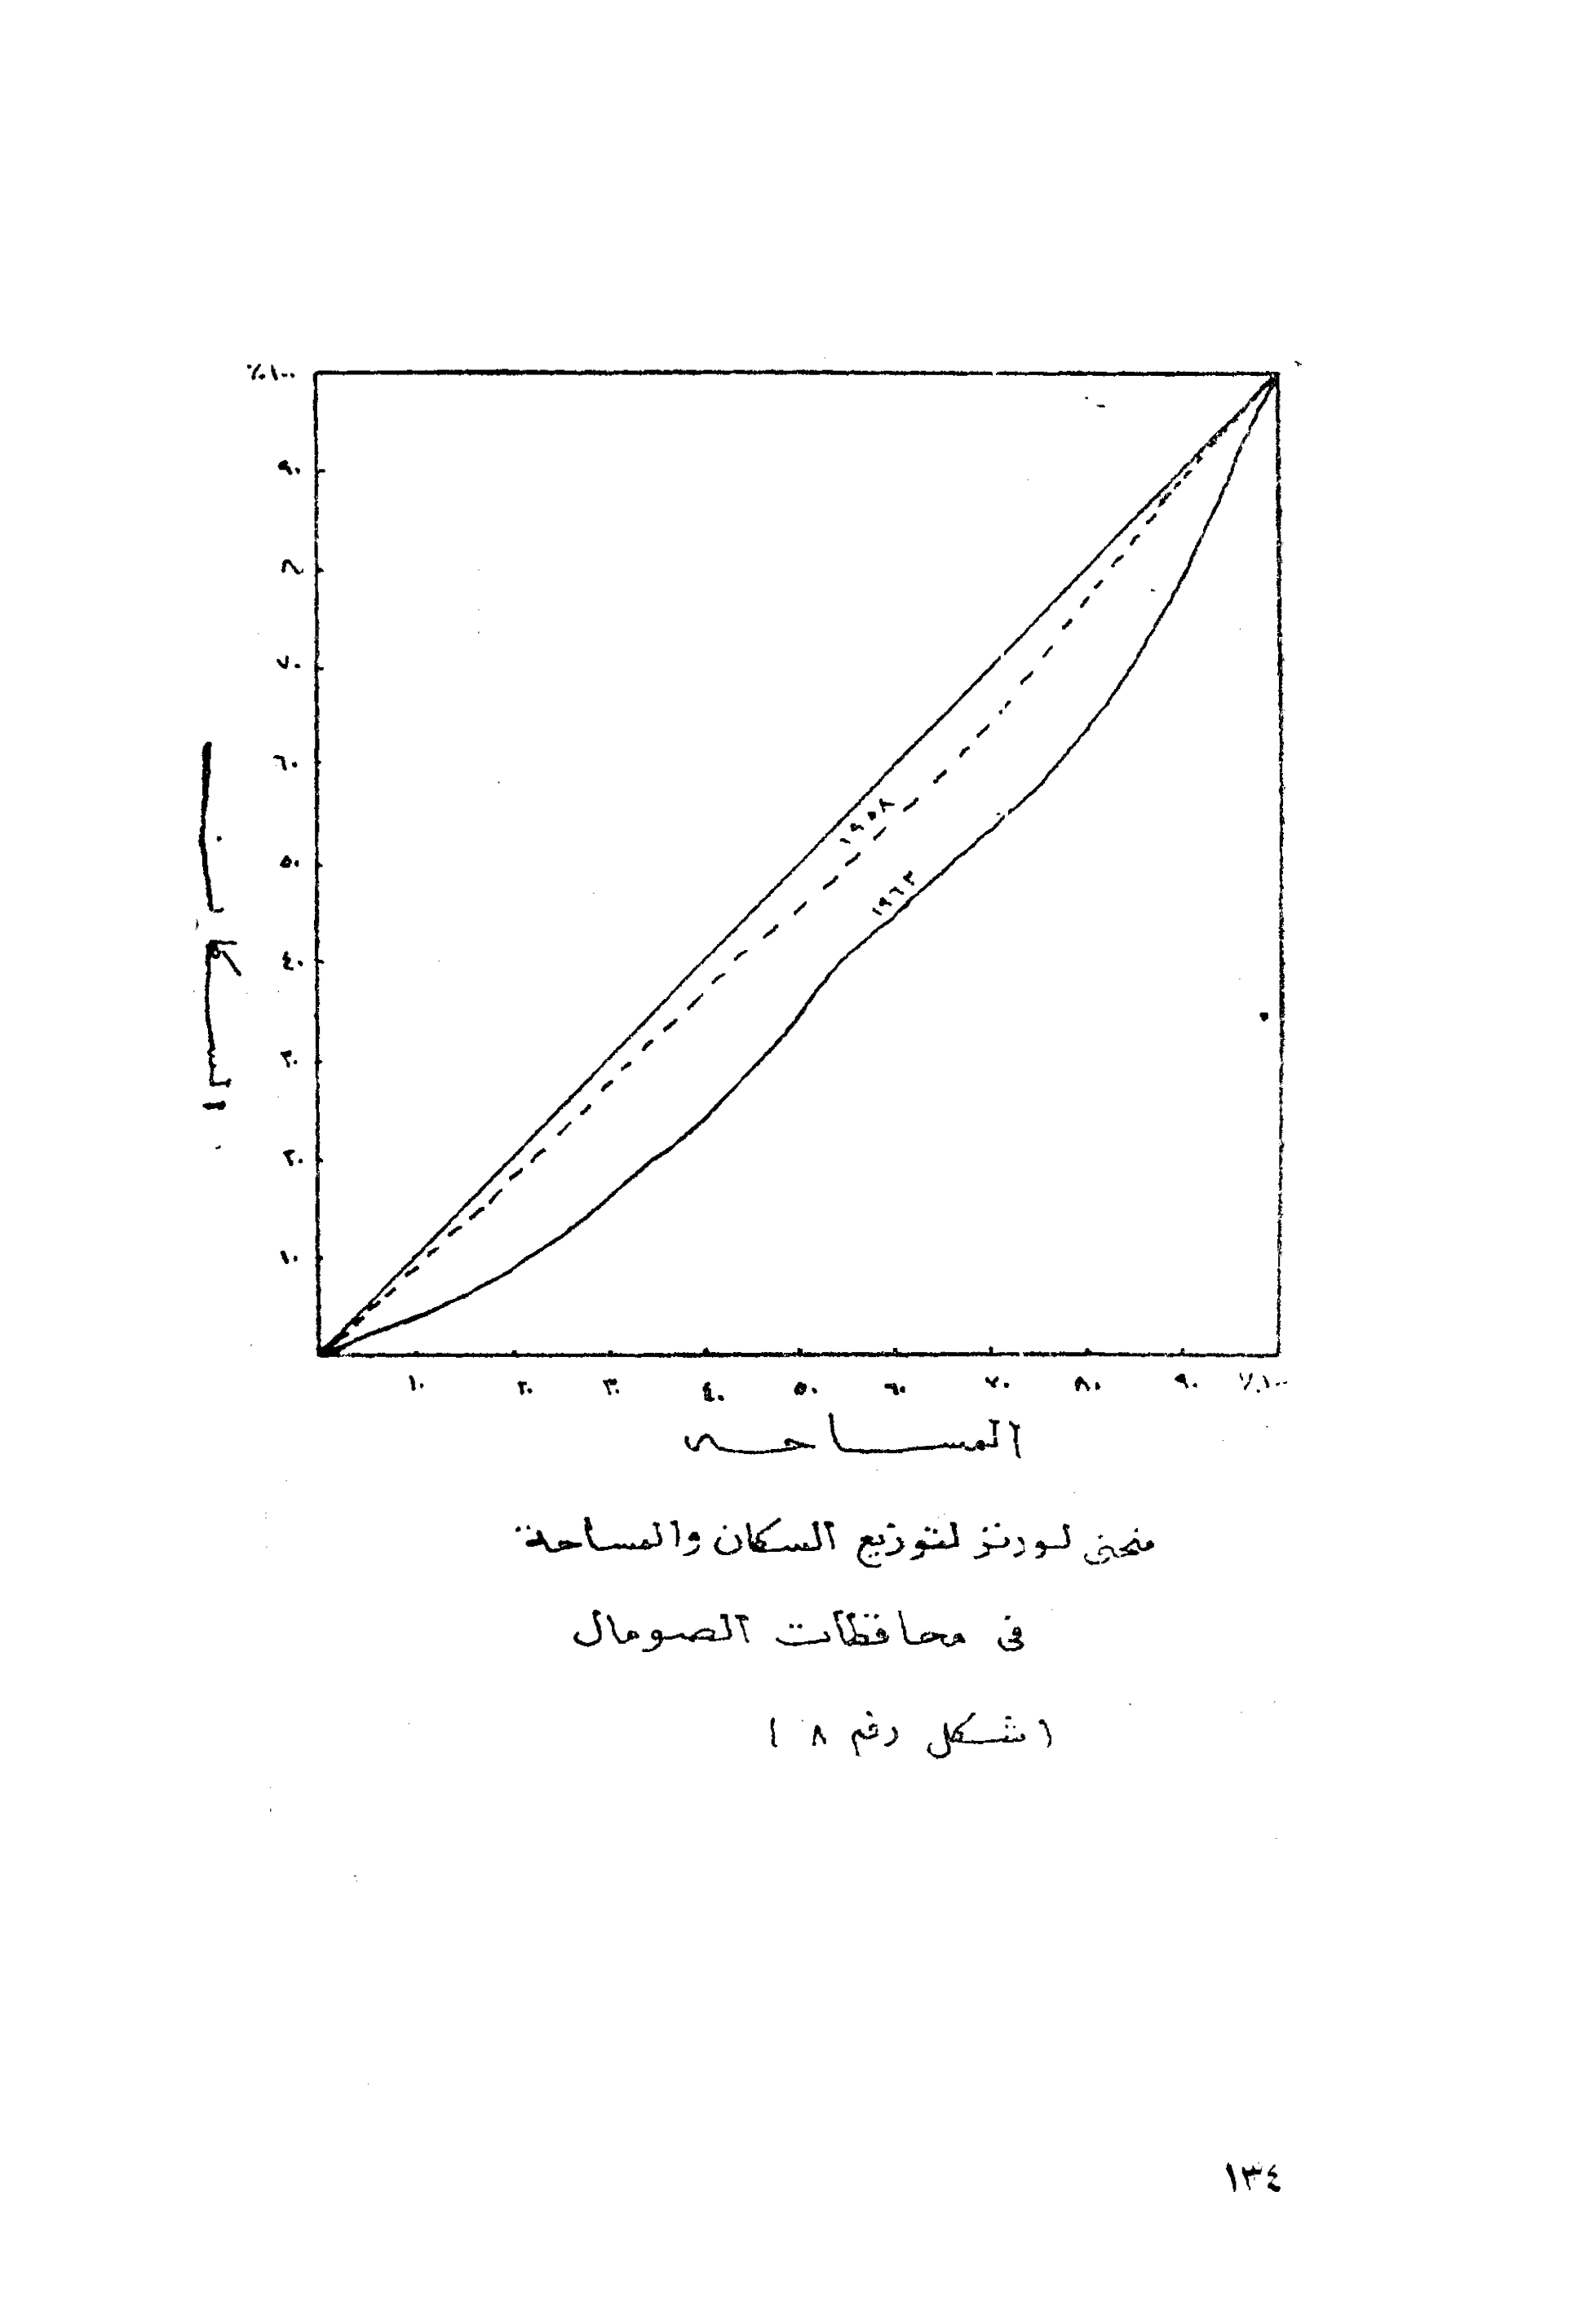 ٪١٠٠
٩٠
٨٠
٧٠
٦٠
٥٠
٤٠
٣٠
٢٠
١٠
السكان
١٩٥٨
١٩٦٣
١٠ ٢٠ ٣٠ ٤٠ ٥٠ ٦٠ ٧٠ ٨٠ ٩٠ ٪١٠٠
المساحه
منحنى لورنز لتوزيع السكان والمساحة
فى محافظات الصومال
(شكل رقم ٨)
١٣٤